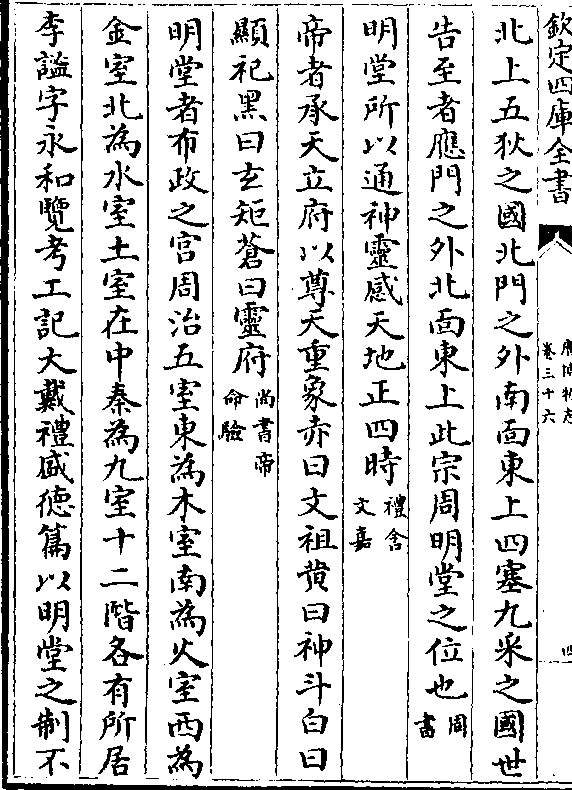 欽定四庫全書
廣博物志
卷三十六
四
北上五狄之國北門之外南面東上四塞九采之國世
告至者應門之外北面東上此宗周明堂之位也周書
明堂所以通神靈感天地正四時禮含文嘉
帝者承天立府以尊天重象赤曰文祖黃曰神斗白曰
顯祀黑曰玄矩蒼曰靈府尚書帝命驗
明堂者布政之宮周治五室東為木室南為火室西為
金室北為水室土室在中秦為九室十二階各有所居
李謐字永和覽考工記大戴禮盛德篇以明堂之制不